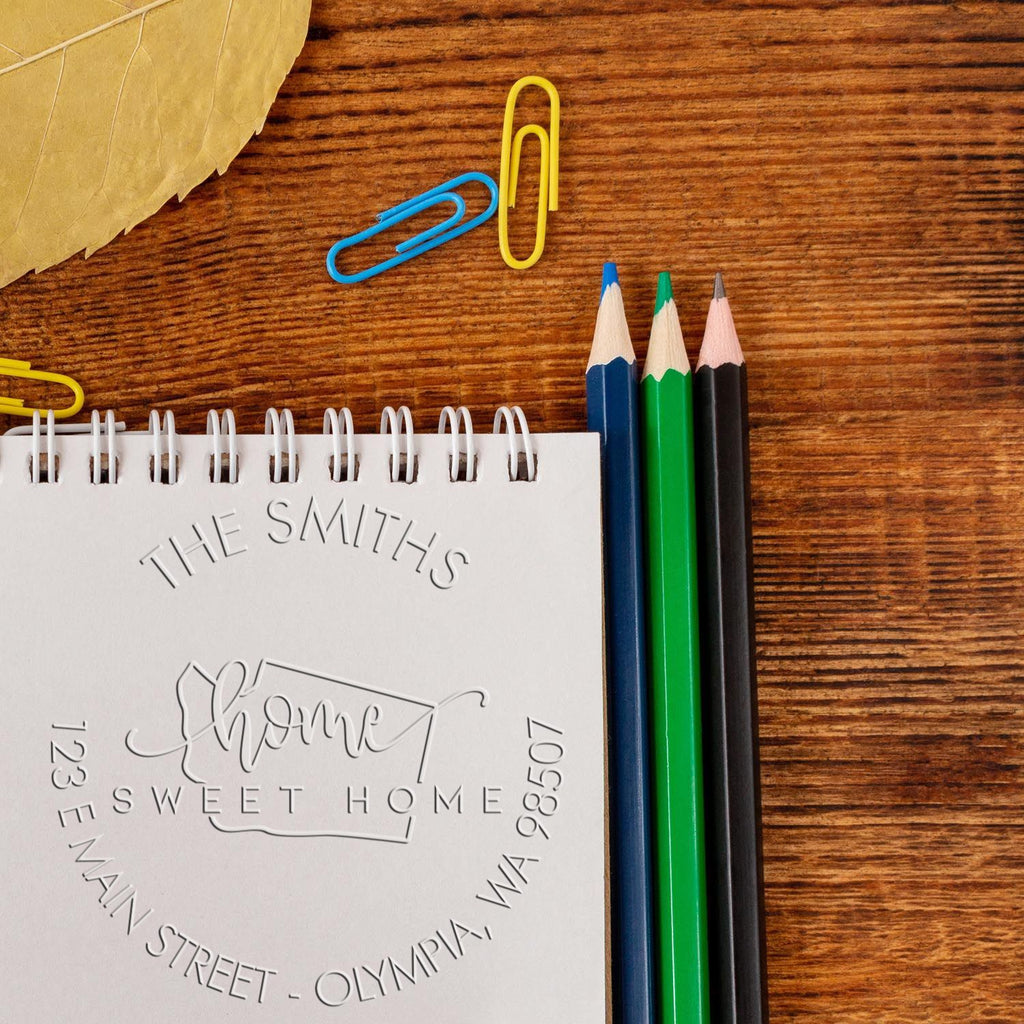 THE SMITHS
home
SWEET HOME
123 E MAIN STREET - OLYMPIA, WA 98507